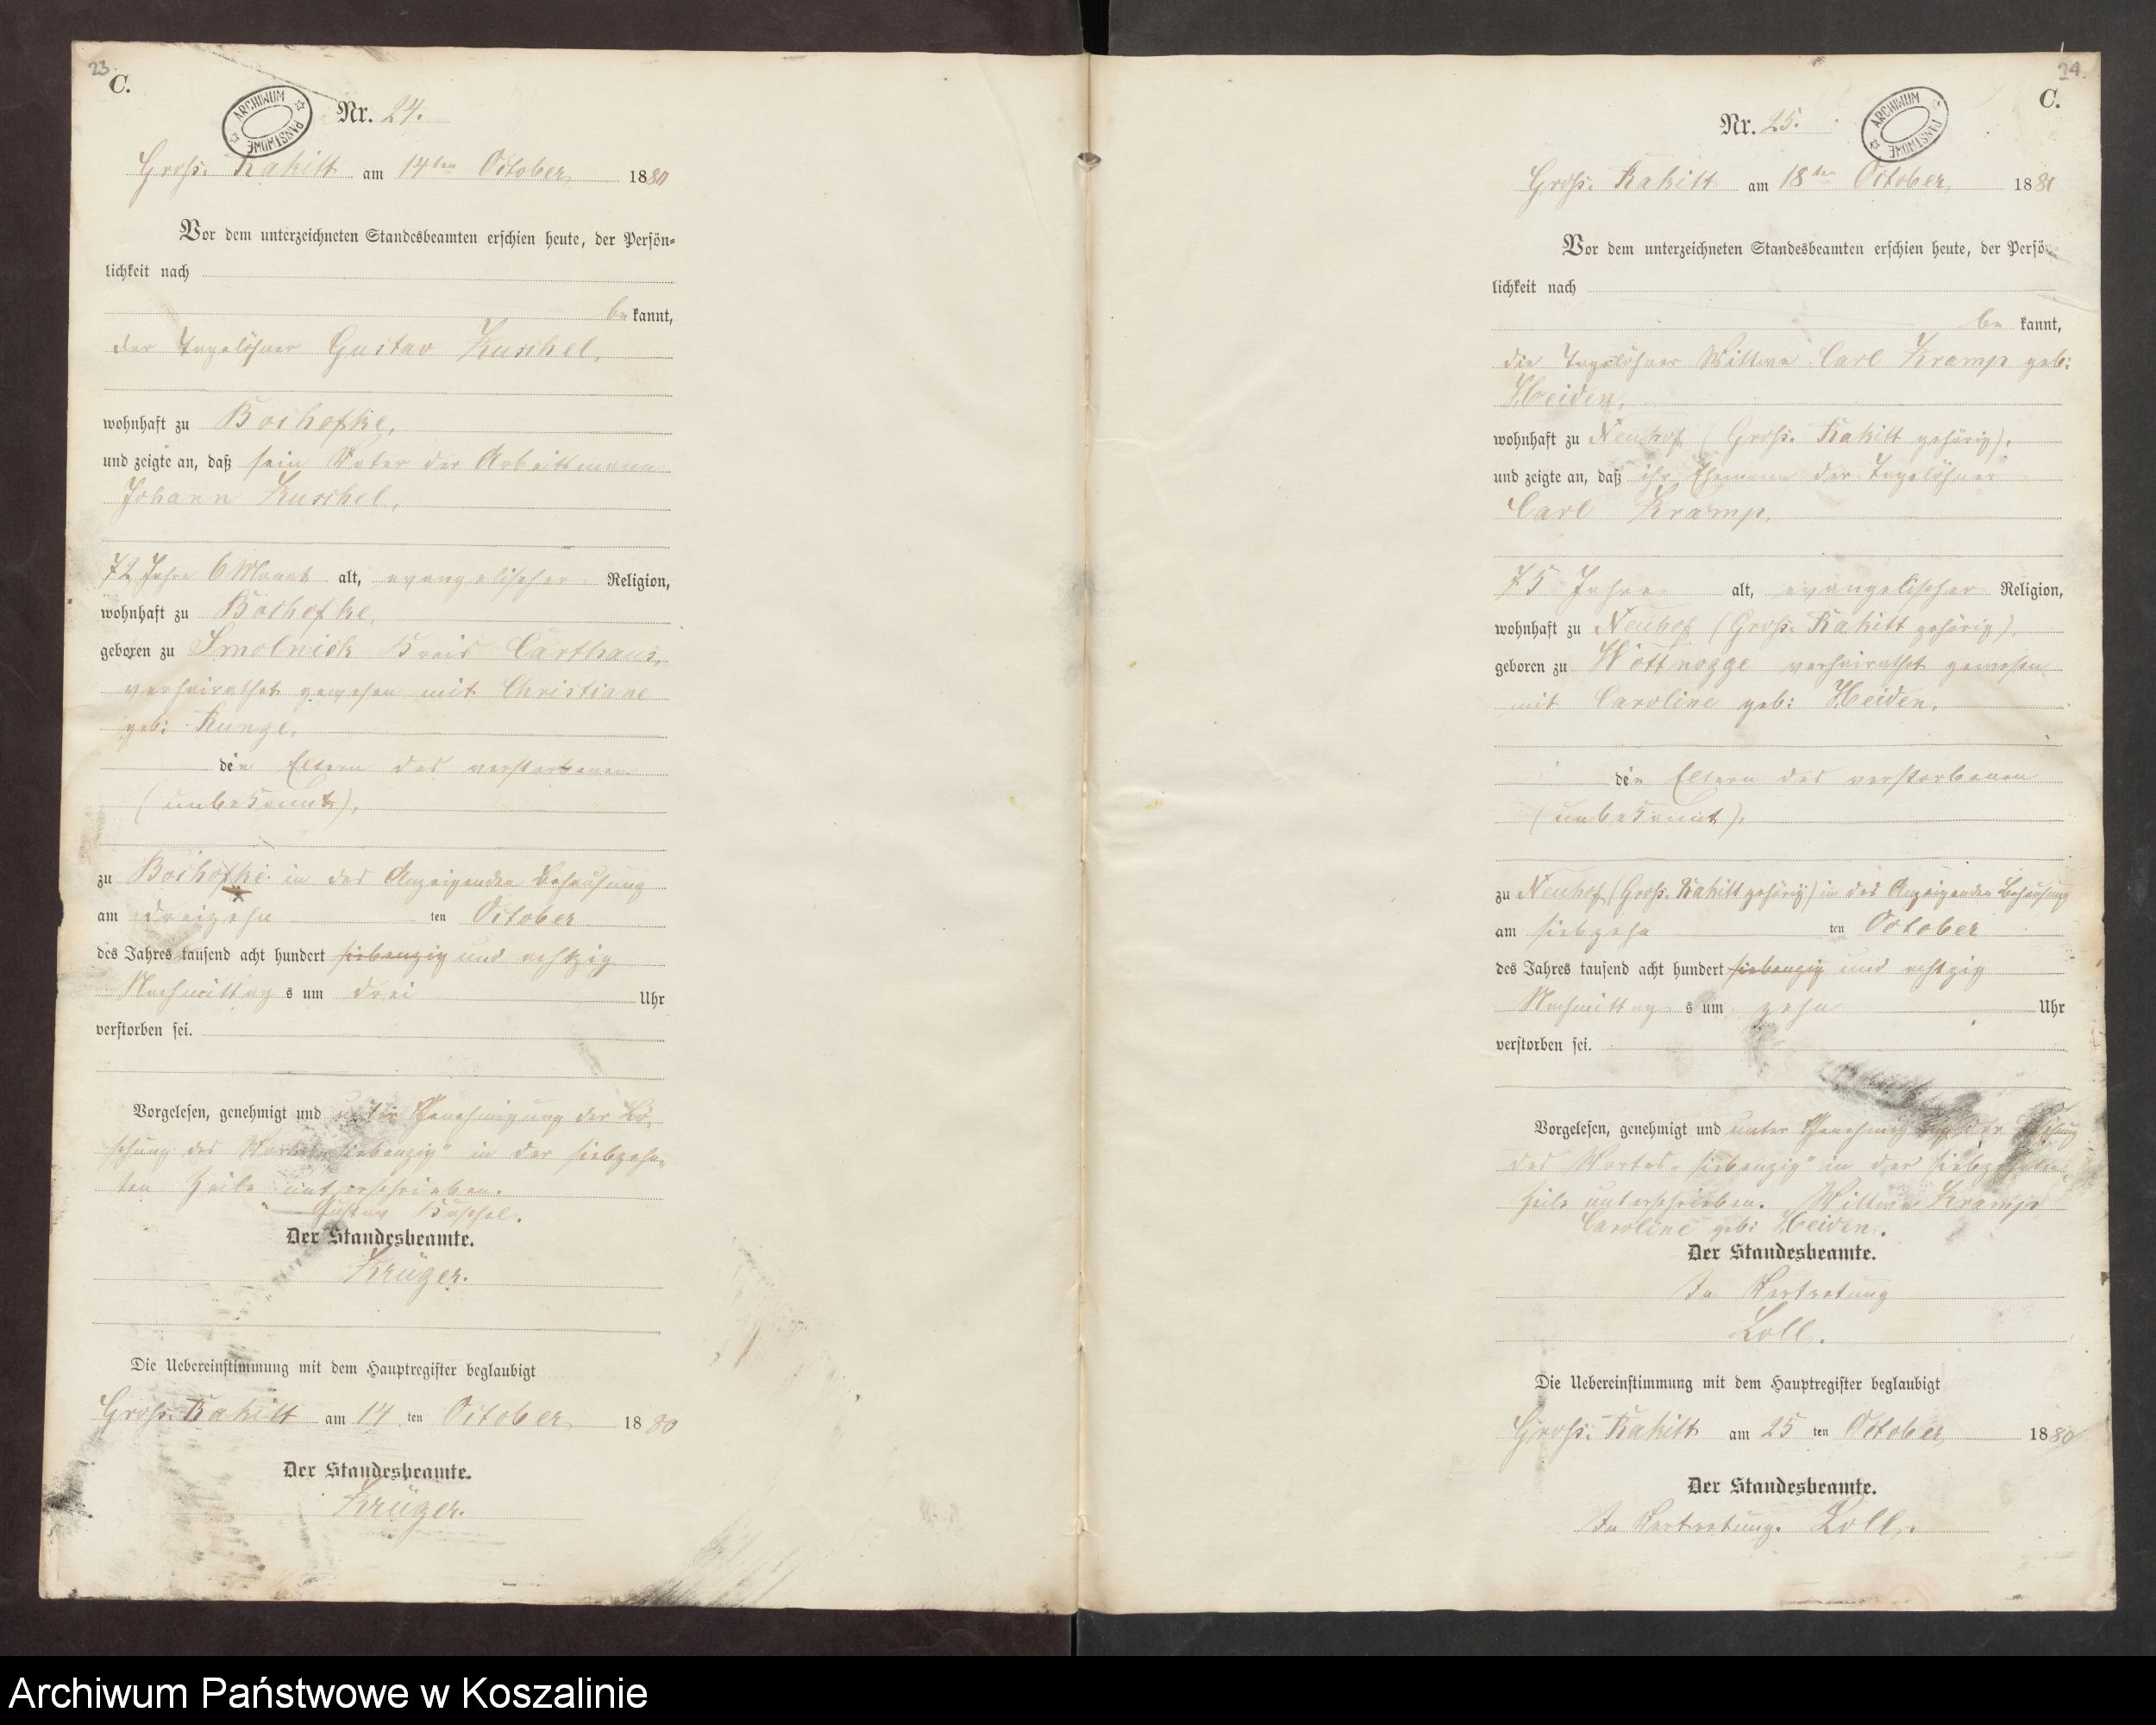 23.
C.
ARCHIWUM PAŃSTWOWE
Nr. 24.
Groß. Rakitt am 14ten October 1880
Vor dem unterzeichneten Standesbeamten erschien heute, der Persön=
lichkeit nach
be kannt,
der Tagelöhner Gustav Kuschel,
wohnhaft zu Bochofke,
und zeigte an, daß sein Vater der Arbeitsmann
Johann Kuschel,
72 Jahre 6 Monat alt, evangelischer Religion,
wohnhaft zu Bochofke,
geboren zu Smolnick Kreis Carthaus,
verheirathet gewesen mit Christiane
geb: Runge,
die Eltern des verstorbenen
(unbekannt),
zu Bochofke in des Anzeigenden Behausung
am dreizehn ten October
des Jahres tausend acht hundert siebenzig und achtzig
Nachmittag s um drei Uhr
verstorben sei.
Vorgelesen, genehmigt und unter Genehmigung der Lö,
schung des Wortes „siebenzig" in der siebzehn„
ten Zeile unterschrieben.
Gustav Kuschel.
Der Standesbeamte.
Krüger.
Die Uebereinstimmung mit dem Hauptregister beglaubigt
Groß. Rakitt am 14 ten October 1880
Der Standesbeamte.
Krüger.
24.
C.
ARCHIWUM PAŃSTWOWE
Nr. 25.
Groß. Rakitt am 18ten October 188
Vor dem unterzeichneten Standesbeamten erschien heute, der Persö
lichkeit nach
be kannt,
die Tagelöhner Wittwe Carl Kramp geb:
Heiden,
wohnhaft zu Neuhof (Groß. Rakitt gehörig),
und zeigte an, daß ihr Ehemann der Tagelöhner
Carl Kramp,
75 Jahre alt, evangelischer Religion,
wohnhaft zu Neuhof (Groß. Rakitt gehörig),
geboren zu Wottnogge verheirathet gewesen
mit Caroline geb: Heiden,
die Eltern des verstorbenen
(unbekannt),
zu Neuhof (Groß. Rakitt gehörig) in des Anzeigenden Behausung
am siebzehn ten October
des Jahres tausend acht hundert siebenzig und achtzig
Nachmittag s um zehn Uhr
verstorben sei.
Vorgelesen, genehmigt und unter Genehmigung der Löschung
des Wortes „siebenzig" in der siebzehnten
Zeile unterschrieben. Wittwe Kramp
Caroline geb: Heiden.
Der Standesbeamte.
In Vertretung
Loll.
Die Uebereinstimmung mit dem Hauptregister beglaubigt
Groß. Rakitt am 25 ten October 1880
Der Standesbeamte.
In Vertretung. Loll.
Archiwum Państwowe w Koszalinie